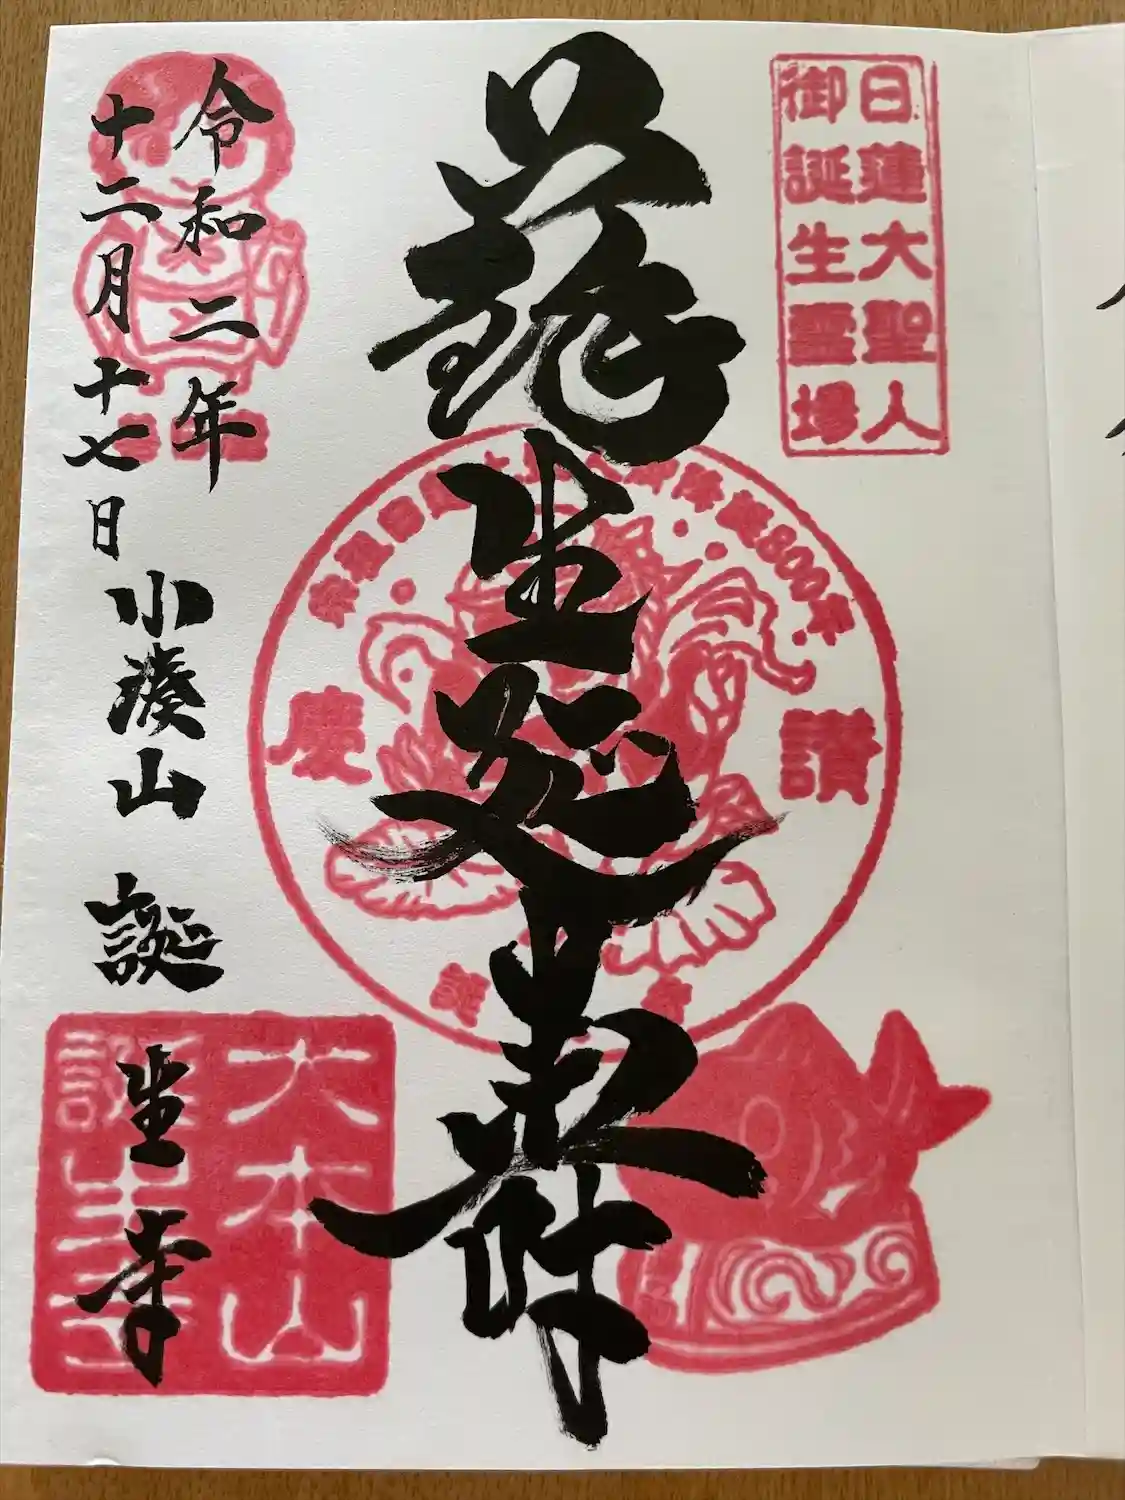 日蓮大聖人
御誕生霊場
蘇生延壽
降誕800年
慶讃
令和二年
十二月十七日
小湊山 誕生寺
大本山
誕生寺